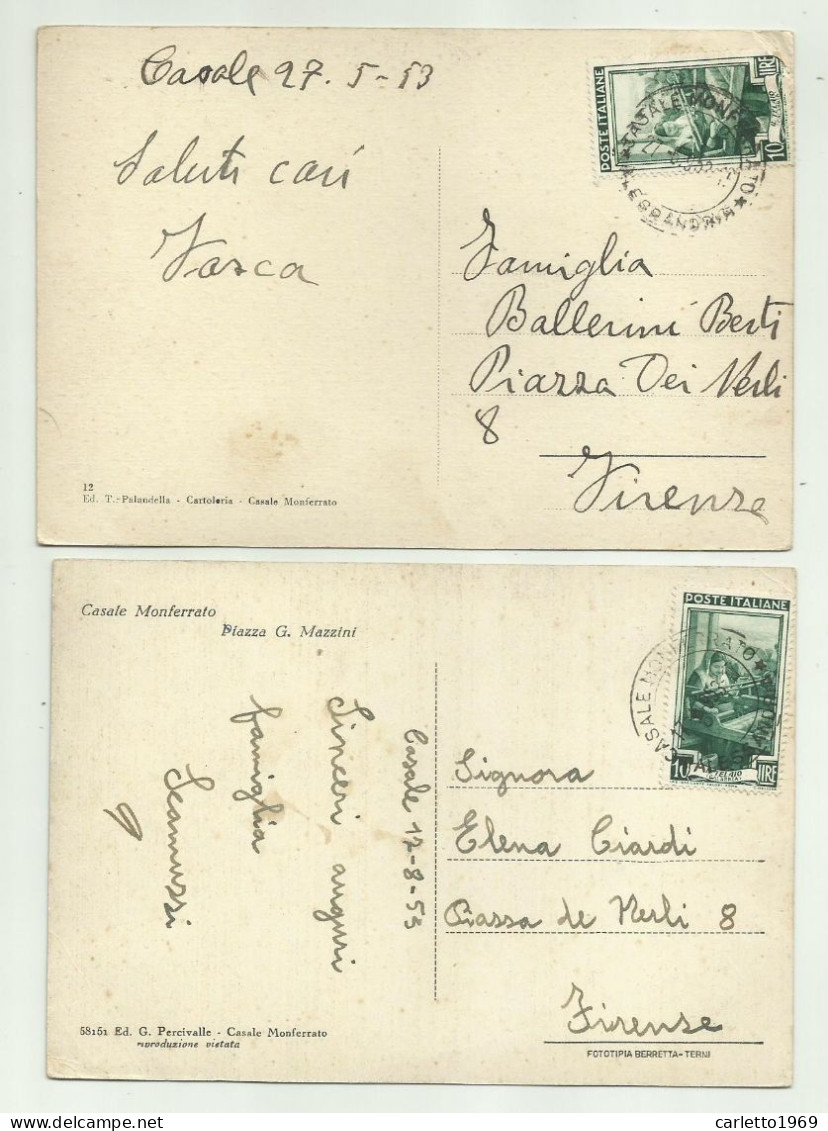 Casale 27. 5-53
Saluti cari
Tosca
POSTE ITALIANE
10 LIRE
IL TELAIO
CASALE MONFERRATO
ALESSANDRIA
Famiglia
Ballerini Berti
Piazza Dei Nerli
8
Firenze
12
Ed. T. Palandella - Cartoleria - Casale Monferrato
Casale Monferrato
Piazza G. Mazzini
Casale 12-8-53
Sinceri auguri
famiglia
Scamuzzi
POSTE ITALIANE
10 LIRE
IL TELAIO
CASALE MONFERRATO
Signora
Elena Ciardi
Piazza de Nerli 8
Firenze
58151 Ed. G. Percivalle - Casale Monferrato
riproduzione vietata
FOTOTIPIA BERRETTA-TERNI
delcampe.net
carletto1969